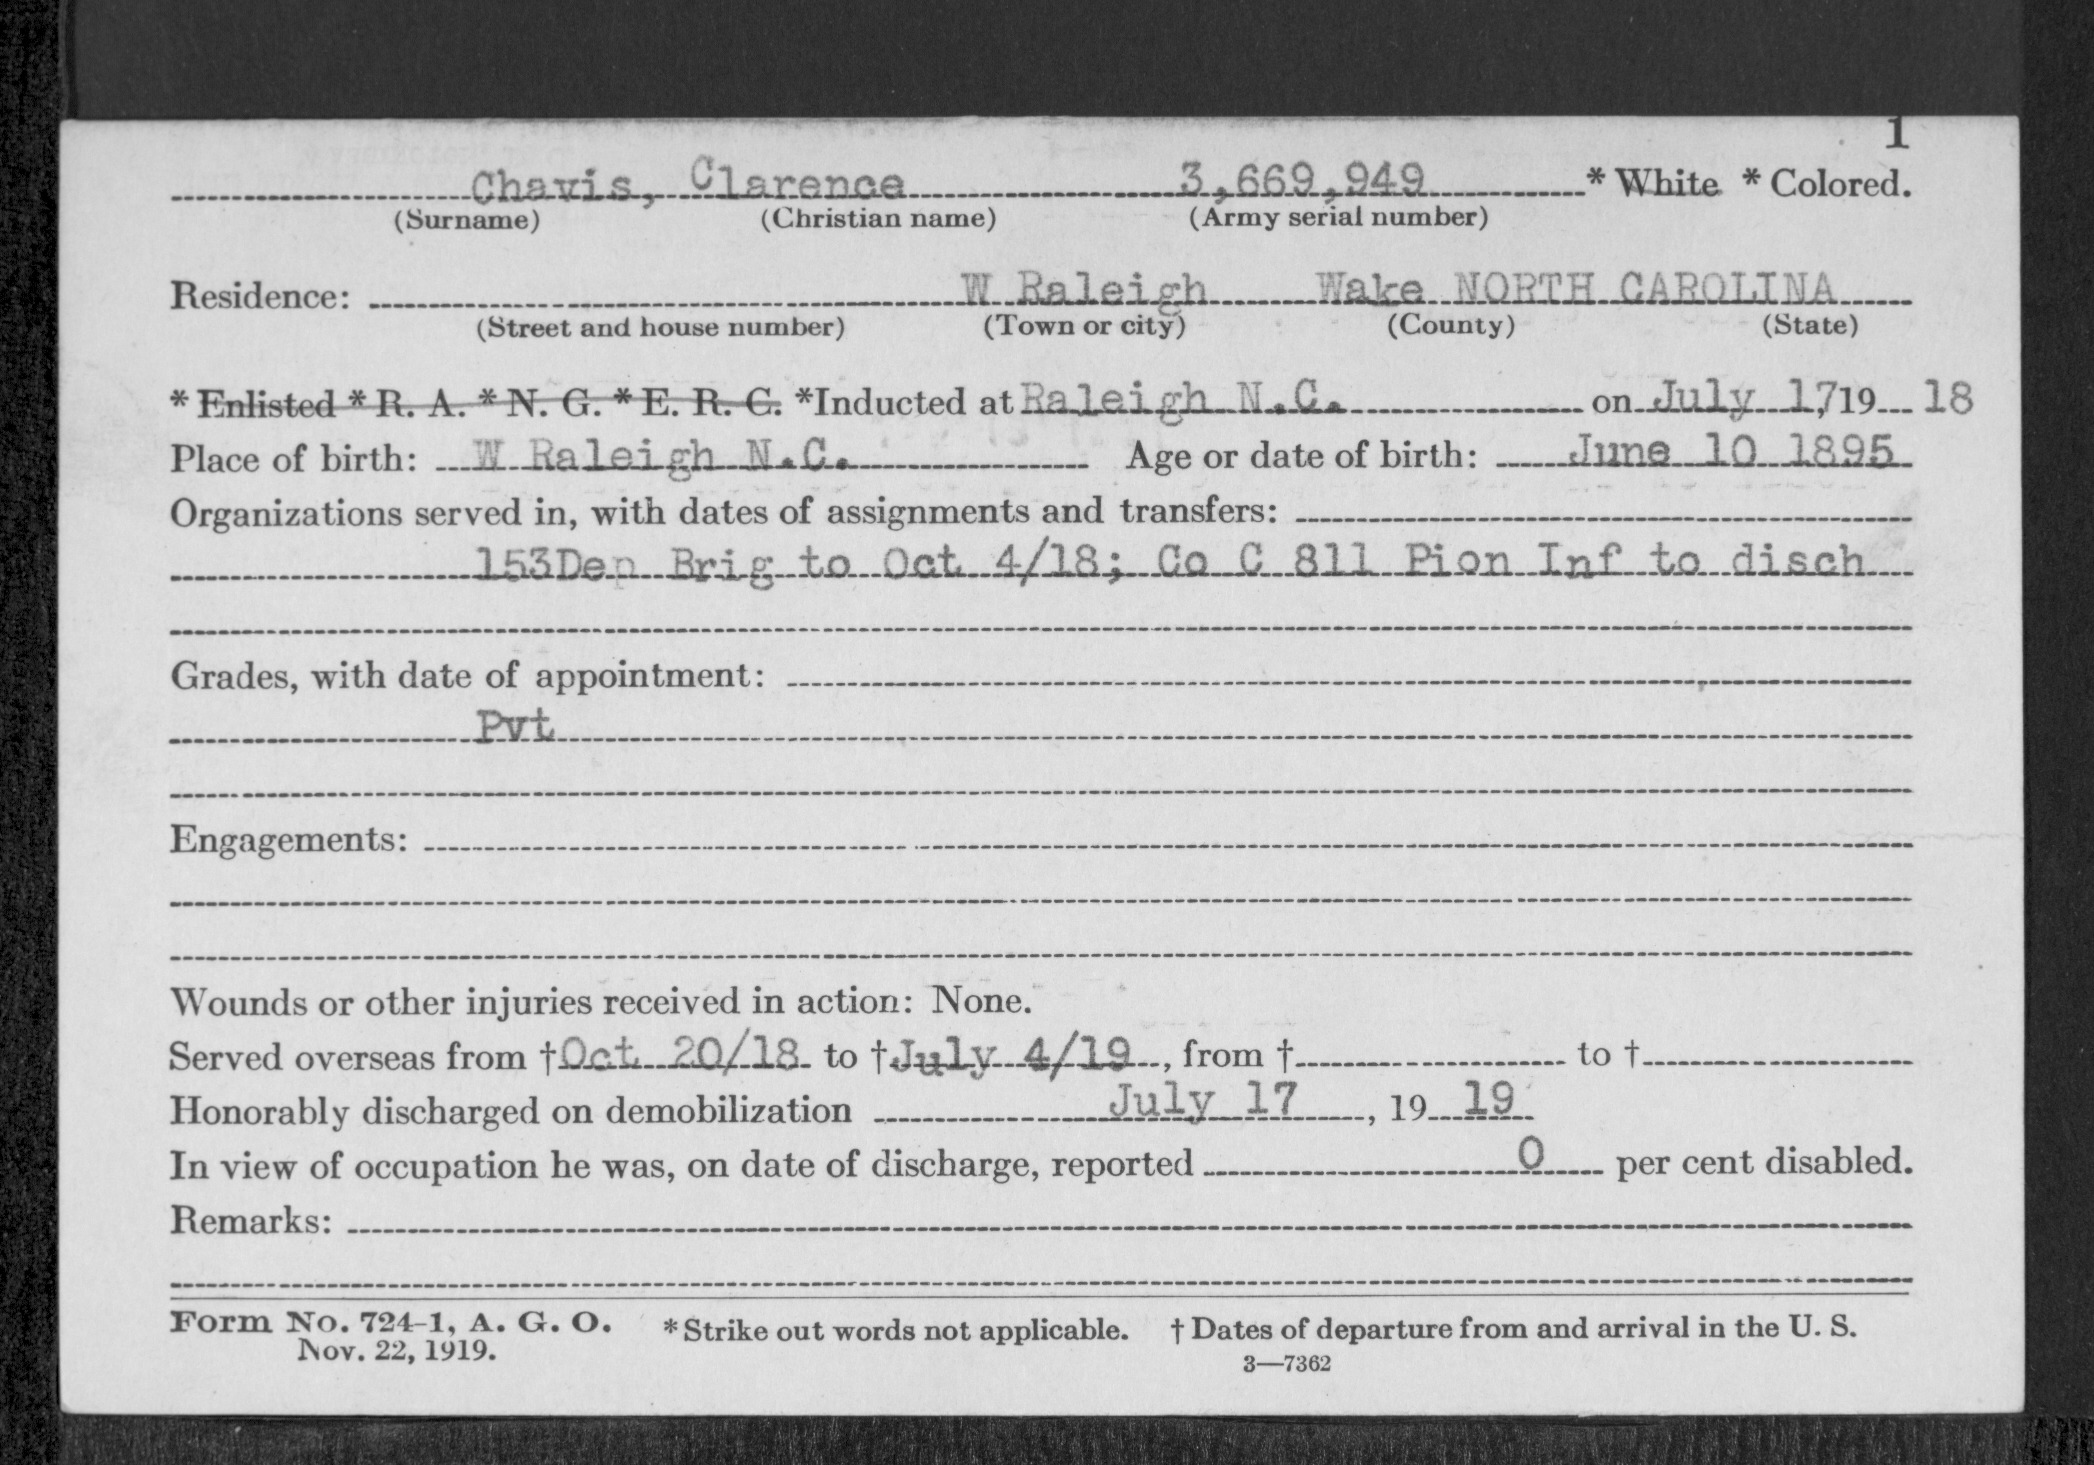 1
Chavis, Clarence 3,669,949 * White * Colored.
(Surname) (Christian name) (Army serial number)
Residence: W Raleigh Wake NORTH CAROLINA
(Street and house number) (Town or city) (County) (State)
* Enlisted * R. A. * N. G. * E. R. C. *Inducted at Raleigh N.C. on July 17, 19 18
Place of birth: W Raleigh N.C. Age or date of birth: June 10 1895
Organizations served in, with dates of assignments and transfers:
153Dep Brig to Oct 4/18; Co C 811 Pion Inf to disch
Grades, with date of appointment:
Pvt
Engagements:
Wounds or other injuries received in action: None.
Served overseas from †Oct 20/18 to †July 4/19, from † to †
Honorably discharged on demobilization July 17, 19 19
In view of occupation he was, on date of discharge, reported 0 per cent disabled.
Remarks:
Form No. 724-1, A. G. O. * Strike out words not applicable. † Dates of departure from and arrival in the U. S.
Nov. 22, 1919. 3—7362